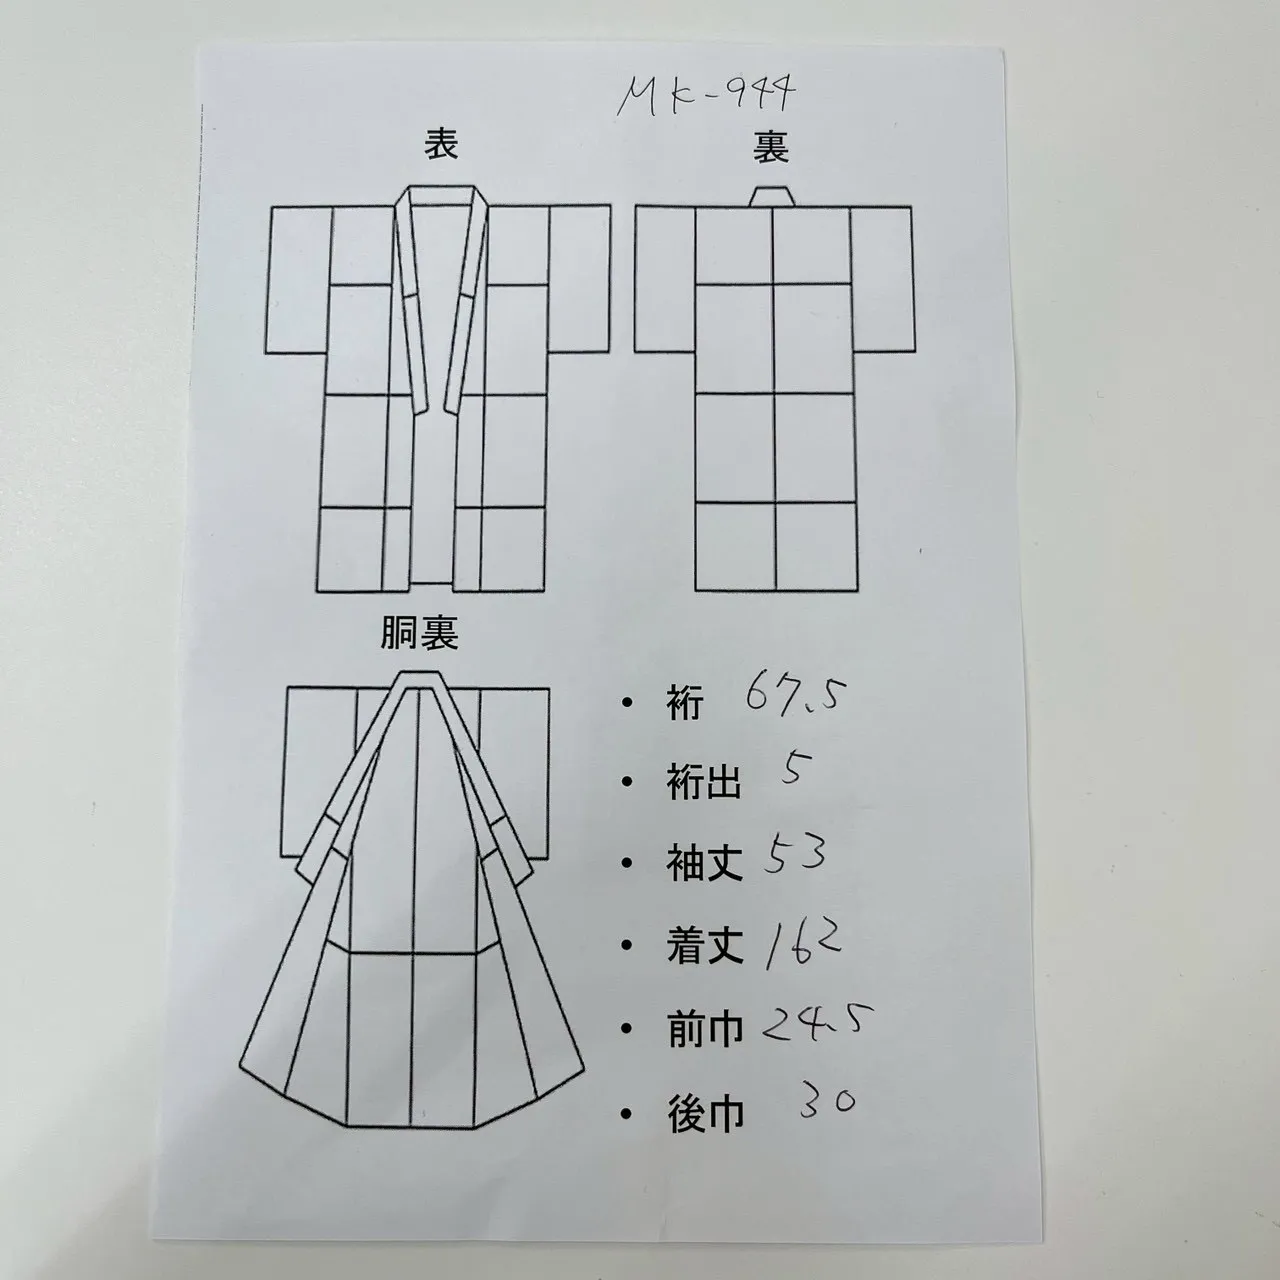 MK-944
表
裏
胴裏
・ 裄 67.5
・ 裄出 5
・ 袖丈 53
・ 着丈 162
・ 前巾 24.5
・ 後巾 30